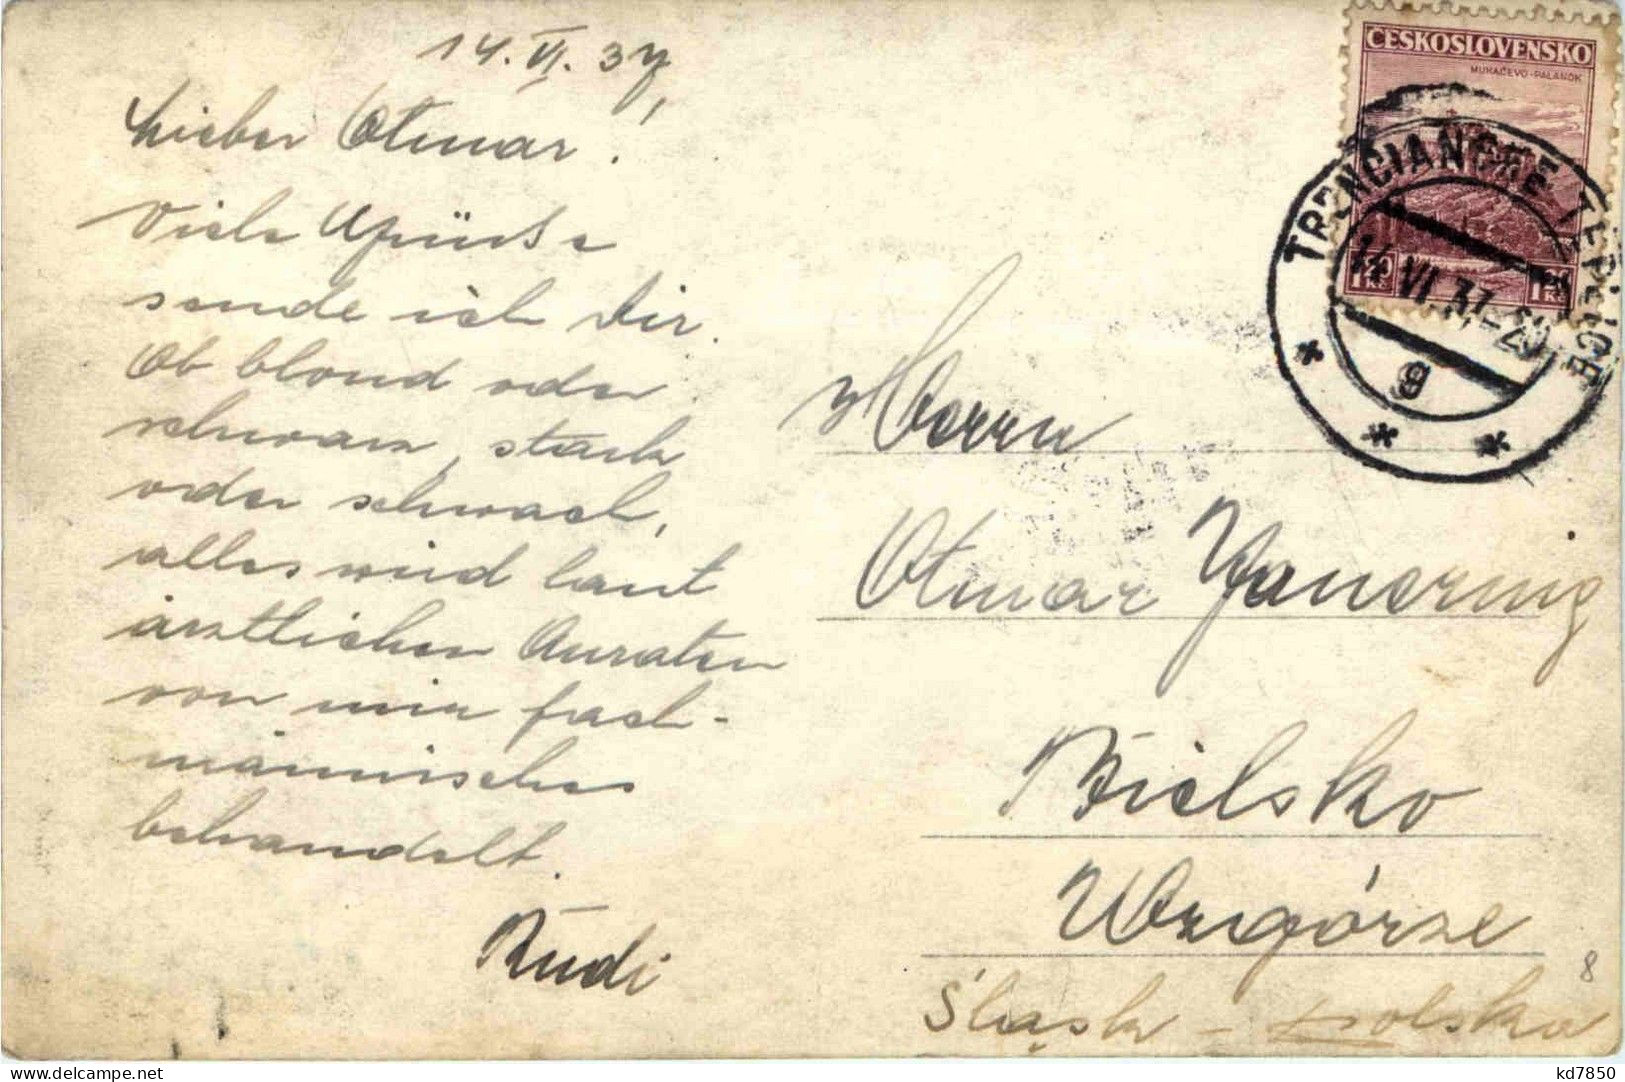 14. VI. 37,
Lieber Otmar!
Viele Grüsse
sende ich Dir.
Ob blond oder
schwarz, stark
oder schwach,
alles wird laut
ärztlichen Auraten
von mir fach-
männisches
behandelt.
Rudi
ČESKOSLOVENSKO
MUKAČEVO-PALANOK
1 20 Kč
TRENČIANSKE TEPLICE
14. VI. 37
g
Herrn
Otmar
Bielsko
Wzgórze
Śląsk - Polska
8
delcampe.net
kd7850